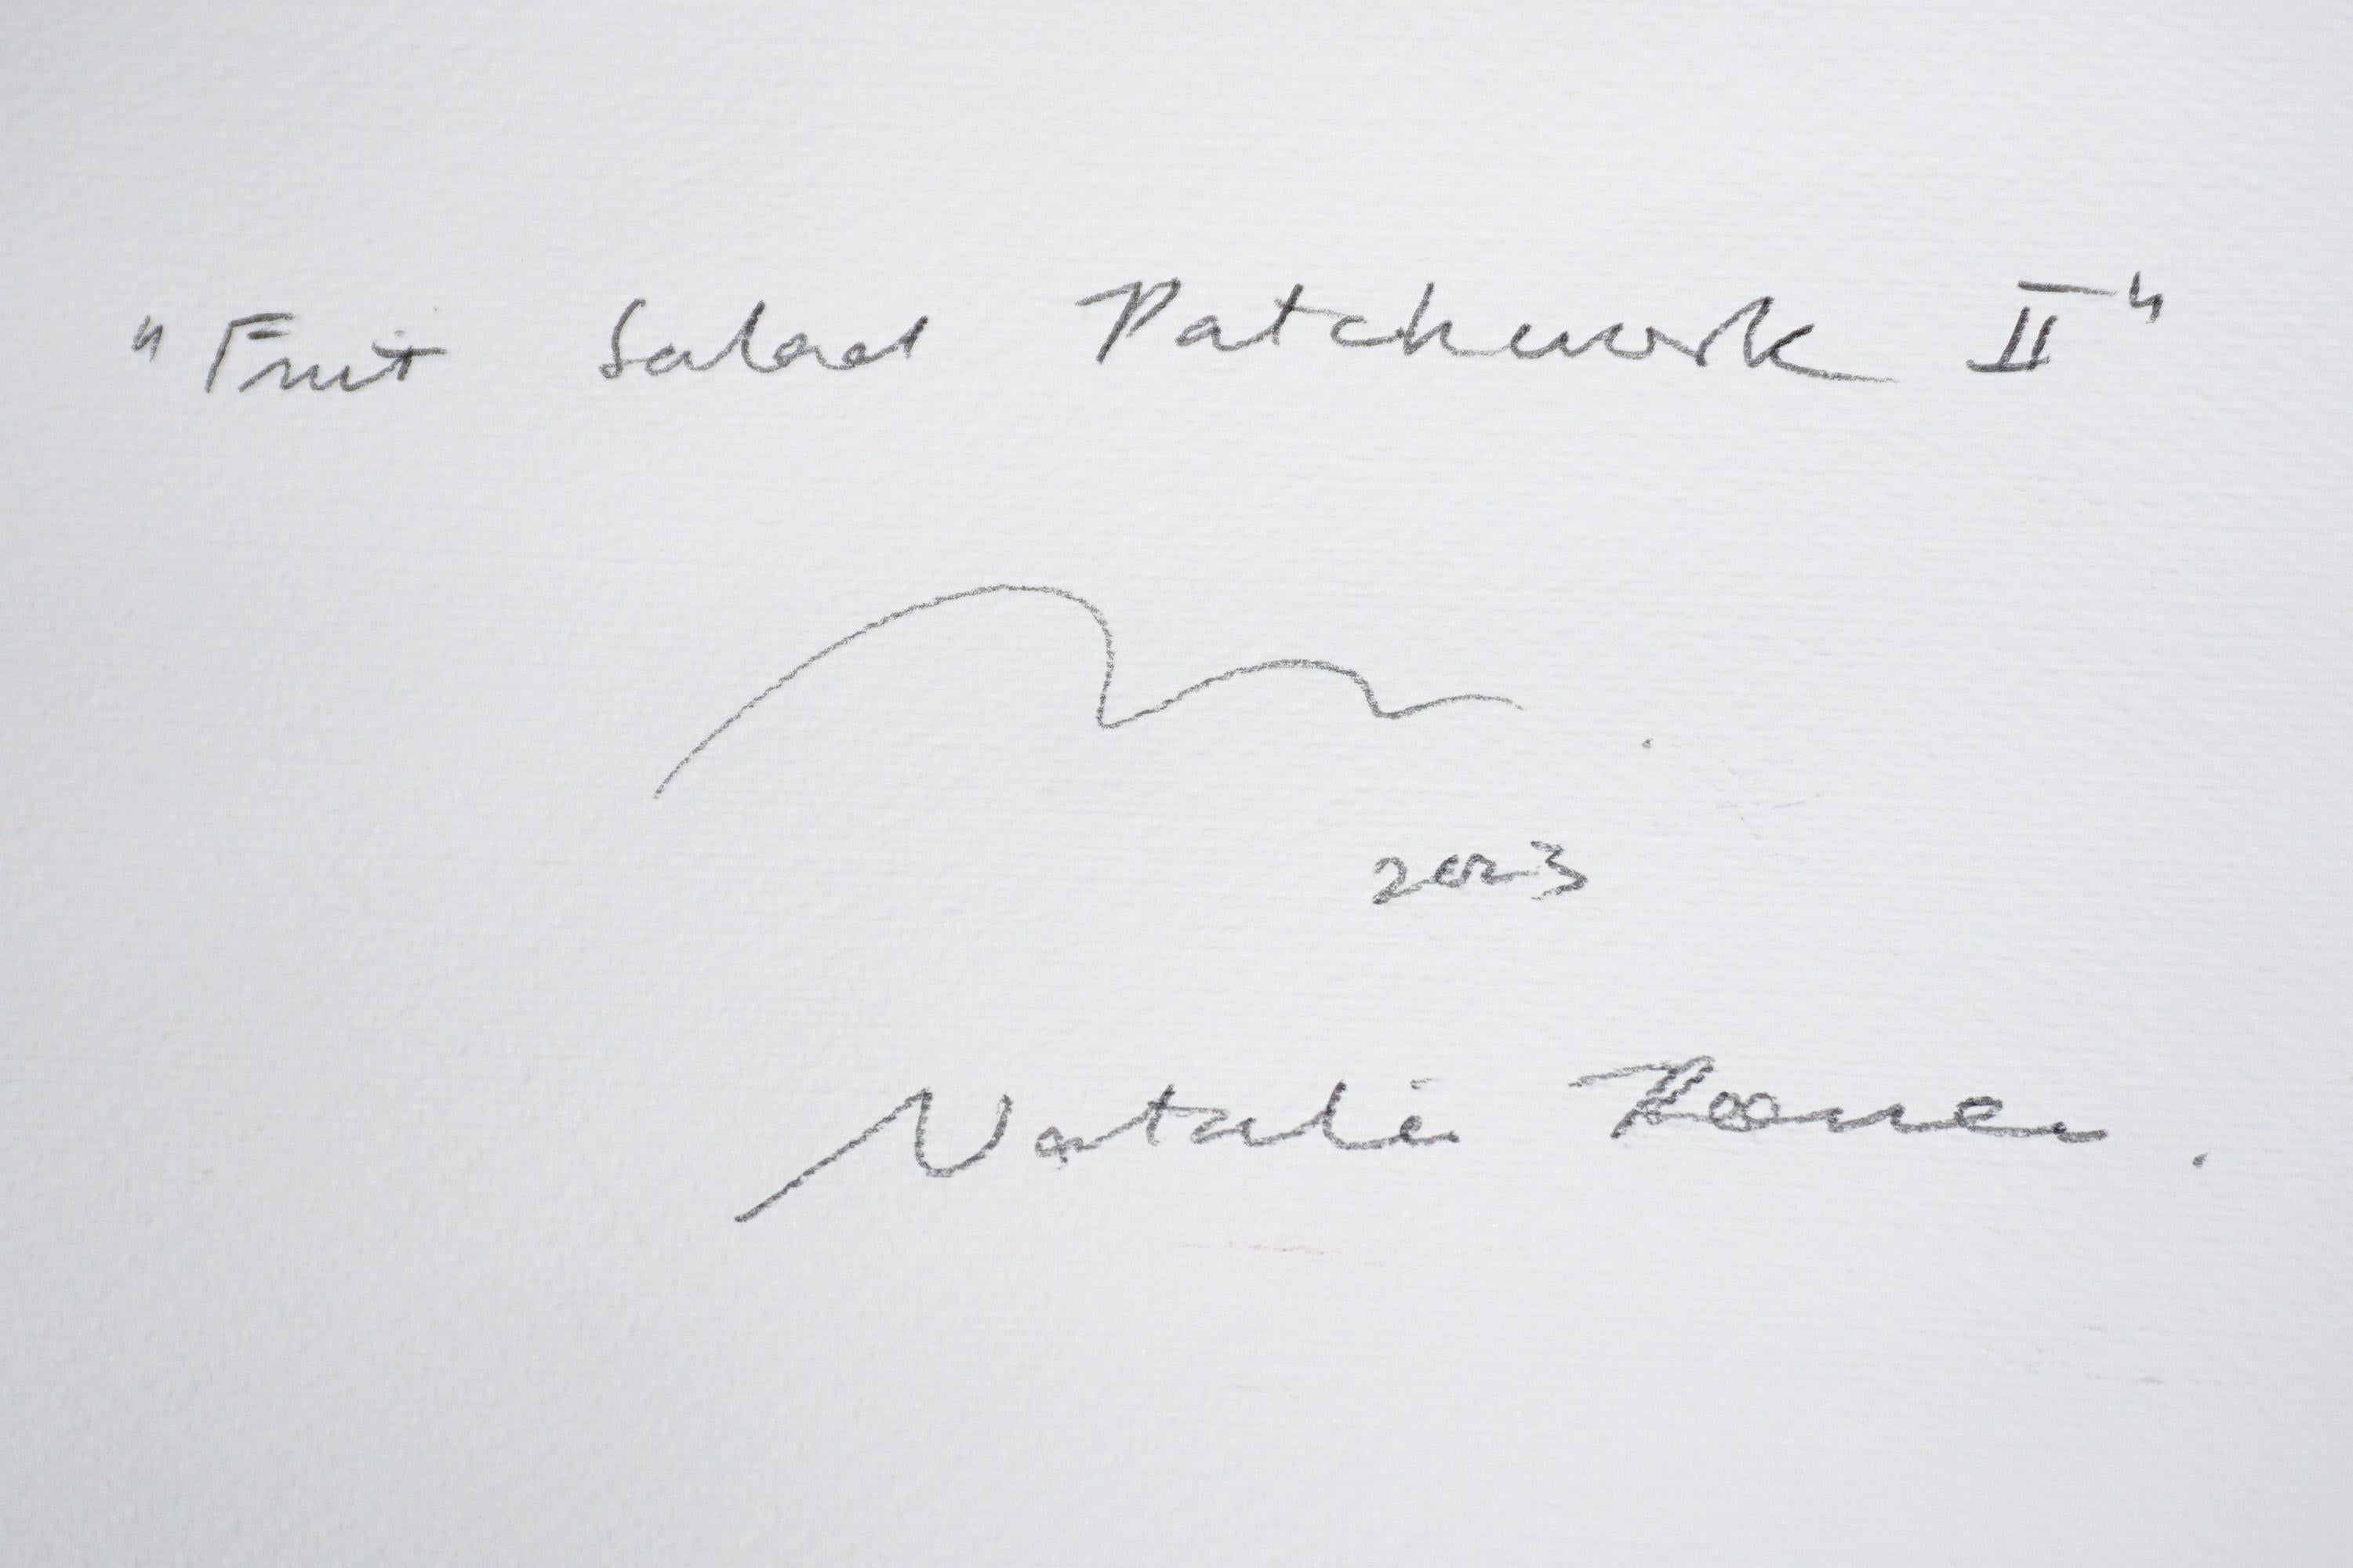 "Fruit Salad Patchwork II"
2023
Natalie